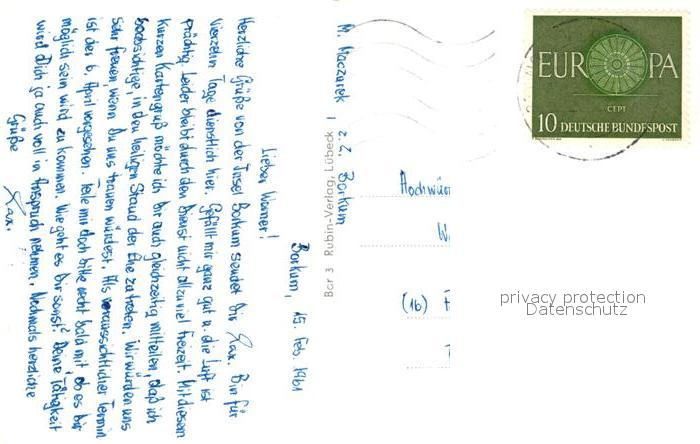 Borkum, 15. Feb. 1961
Lieber Werner!
Herzliche Grüße von der Insel Borkum sendet Dir Xax. Bin für
vierzehn Tage dienstlich hier. Gefällt mir ganz gut u. die Luft ist
prächtig. Leider bleibt durch den Dienst nicht allzuviel Freizeit. Mit diesem
kurzen Kartengruß möchte ich Dir auch gleichzeitig mitteilen, daß ich
beabsichtige, in den heiligen Stand der Ehe zu treten. Wir würden uns
sehr freuen, wenn Du uns trauen würdest. Als voraussichtlicher Termin
ist der 6. April vorgesehen. Teile mir doch bitte recht bald mit, ob es Dir
möglich sein wird zu kommen. Wie geht es Dir sonst? Deine Tätigkeit
wird Dich ja auch voll in Anspruch nehmen. Nochmals herzliche
Grüße
Xax.
Bor 3 Rubin-Verlag, Lübeck 1
M. Maczurek
z. Z. Borkum
Hochwür
(16) F
EUROPA
CEPT
10 DEUTSCHE BUNDESPOST
privacy protection
Datenschutz